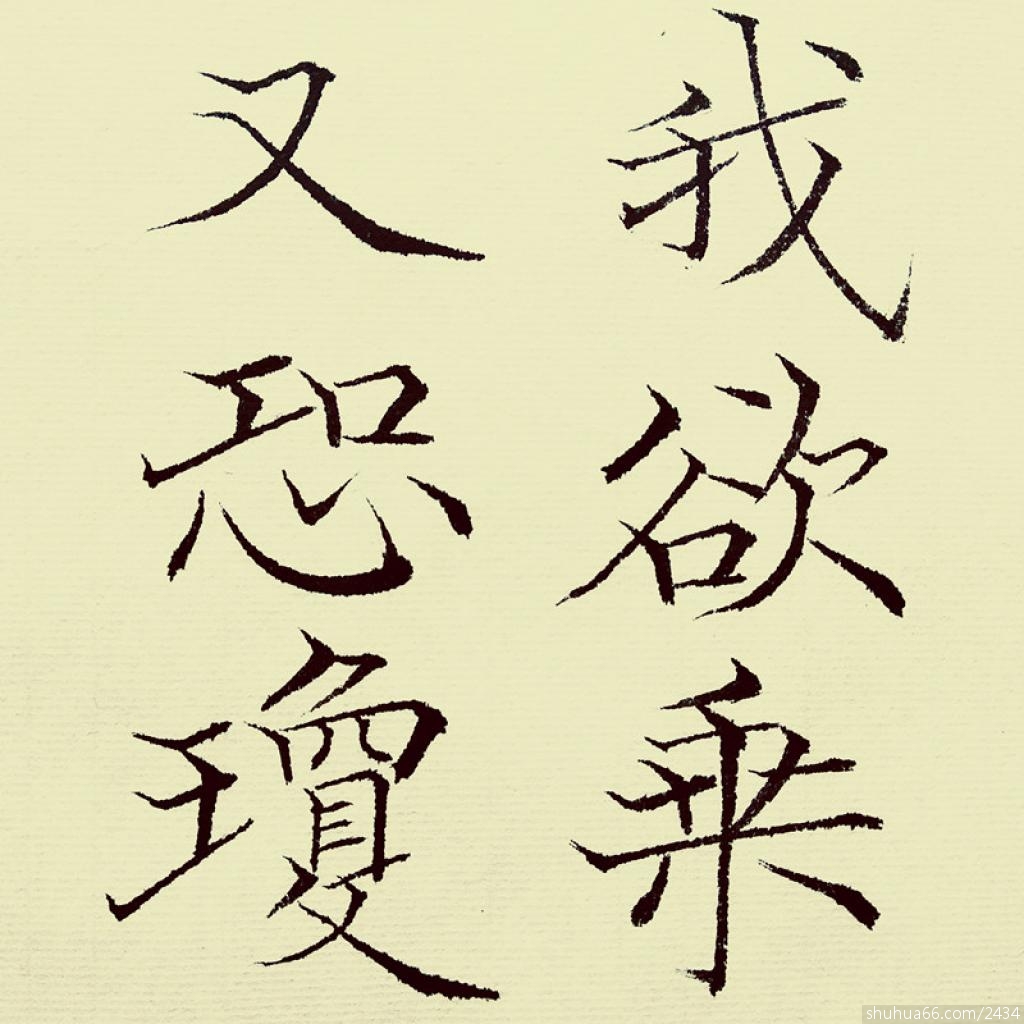 我欲乗
又恐瓊
shuhua66.com/2434